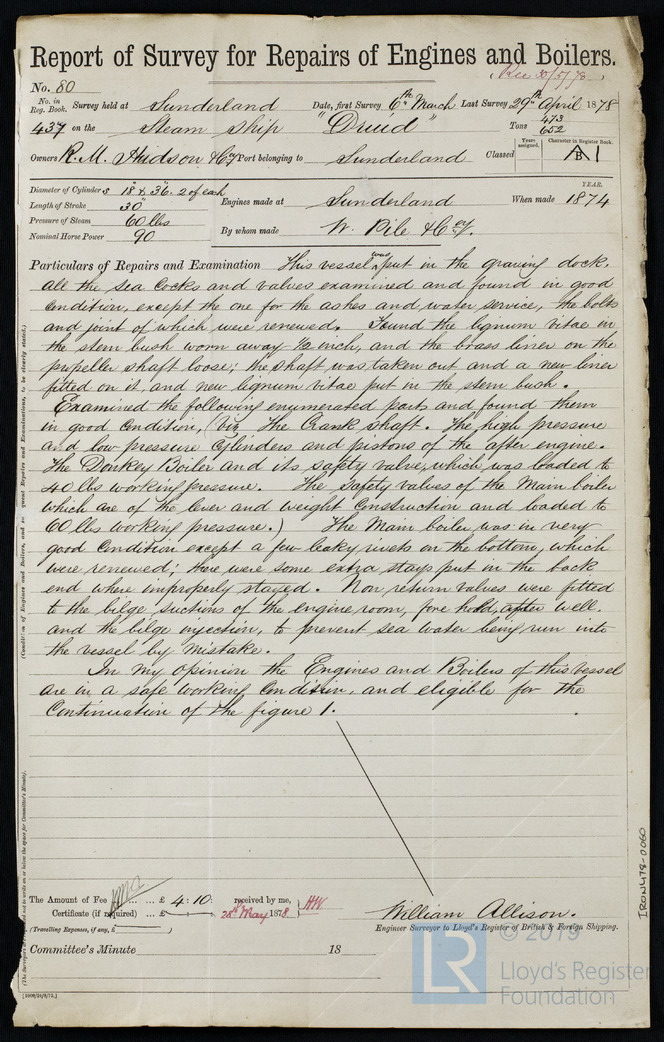 Report of Survey for Repairs of Engines and Boilers.
No. 80
Rec 30/5/78
No. in Reg. Book. Survey held at Sunderland Date, first Survey 6th March Last Survey 29th April 1878
437 on the Steam Ship "Druid" Tons 473 652
Years assigned. Character in Register Book.
Owners R. M. Hudson & Cy Port belonging to Sunderland Classed A B 1
Diameter of Cylinders 18 & 36. 2 of each
Length of Stroke 30"
Pressure of Steam 60 lbs
Nominal Horse Power 90
Engines made at Sunderland When made YEAR. 1874
By whom made W. Pile & Coy.
Particulars of Repairs and Examination This vessel was put in the graving dock.
all the sea cocks and valves examined and found in good
condition, except the one for the ashes and water service, the bolts
and joint of which were renewed. Found the lignum vitae in
the stern bush worn away 1/2 inch, and the brass liner on the
propeller shaft loose; the shaft was taken out and a new liner
fitted on it and new lignum vitae put in the stern bush.
Examined the following enumerated parts and found them
in good condition, (viz the Crank shaft. The high pressure
and low pressure cylinders and pistons of the after engine.
The Donkey Boiler and its safety valve, which was loaded to
40 lbs working pressure. The safety valves of the Main boiler
which are of the lever and weight construction and loaded to
60 lbs working pressure.) The Main boiler was in very
good condition except a few leaky rivets on the bottom, which
were renewed; there were some extra stays put in the back
end where improperly stayed. Non return valves were fitted
to the bilge suctions of the engine room, fore hold, after well.
and the bilge injection, to prevent sea water being run into
the vessel by mistake.
In my opinion the Engines and Boilers of this vessel
are in a safe working condition, and eligible for the
Continuation of the figure 1.
The Amount of Fee ... ... £ 4 : 10 : received by me, HW
Certificate (if required) ... £ 28th May 1878
(Travelling Expenses, if any, £ )
William Allison.
Engineer Surveyor to Lloyd's Register of British & Foreign Shipping.
Committee's Minute 18
IRON478-0060
© 2019
LR
Lloyd's Register
Foundation